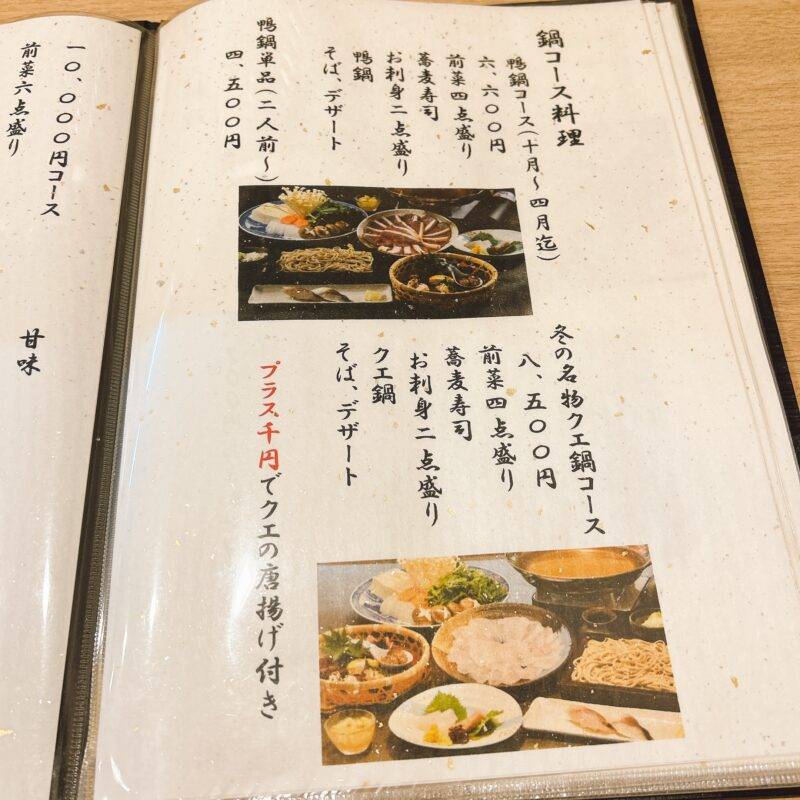 鍋コース料理
鴨鍋コース(十月～四月迄)
六、六〇〇円
前菜四点盛り
蕎麦寿司
お刺身二点盛り
鴨鍋
そば、デザート
鴨鍋単品(二人前～)
四、五〇〇円
冬の名物クエ鍋コース
八、五〇〇円
前菜四点盛り
蕎麦寿司
お刺身二点盛り
クエ鍋
そば、デザート
プラス千円でクエの唐揚げ付き
一〇、〇〇〇円コース
前菜六点盛り
甘味